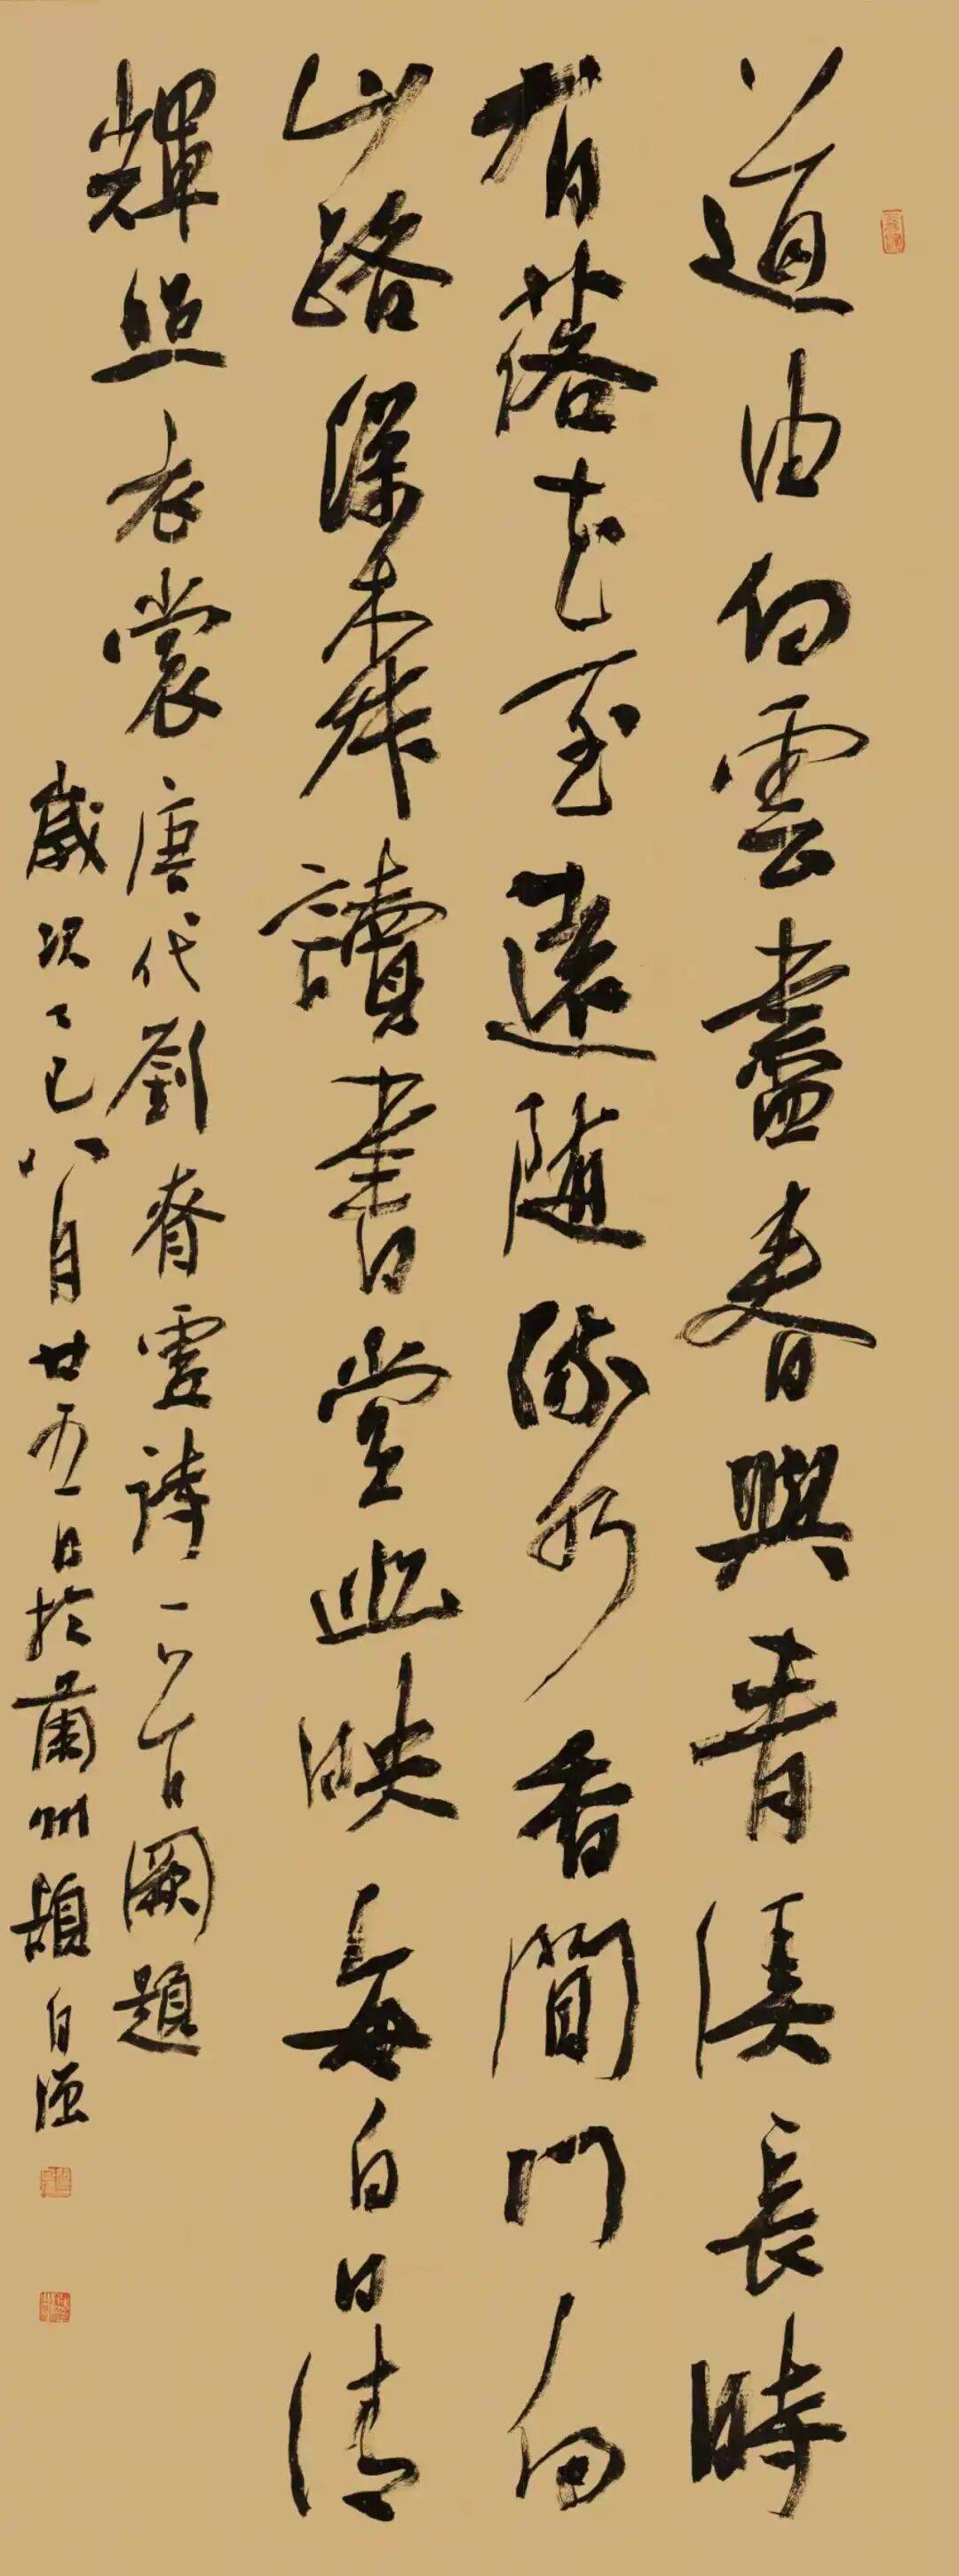 道由白雲盡春與青溪長時
有落花至遠隨流水香閒門向
山路深柳讀書堂幽映每白日清
輝照衣裳唐代劉眘虛詩一首闕題
歲次乙巳八月廿五日於蘭州